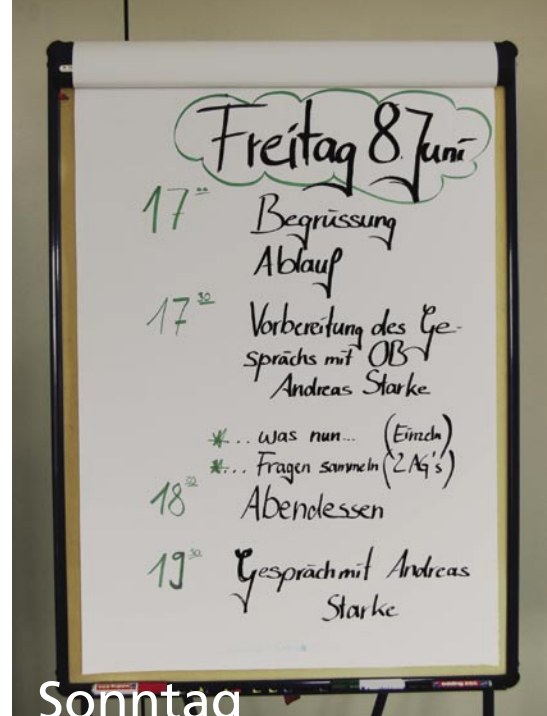 Freitag 8. Juni
17 00 Begrüssung
Ablauf
17 30 Vorbereitung des Ge-
sprächs mit OB
Andreas Starke
*... was nun... (Einzeln)
*... Fragen sammeln (2 AG's)
18 Abendessen
19 30 Gespräch mit Andreas
Starke
Sonntag